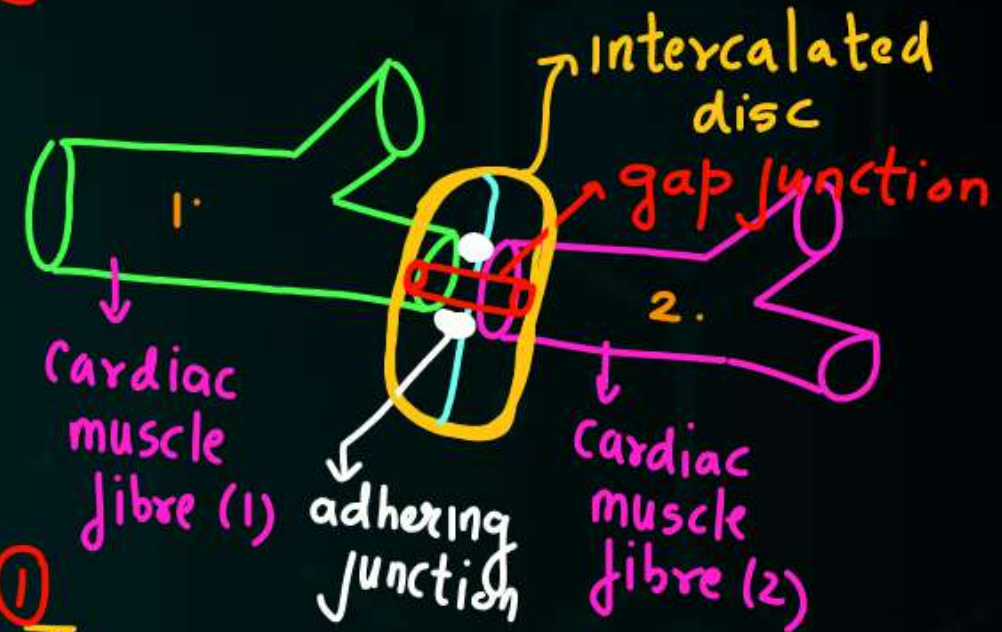 Intercalated
disc
gap junction
1.
2.
Cardiac
muscle
fibre (1)
adhering
junction
Cardiac
muscle
fibre (2)
1